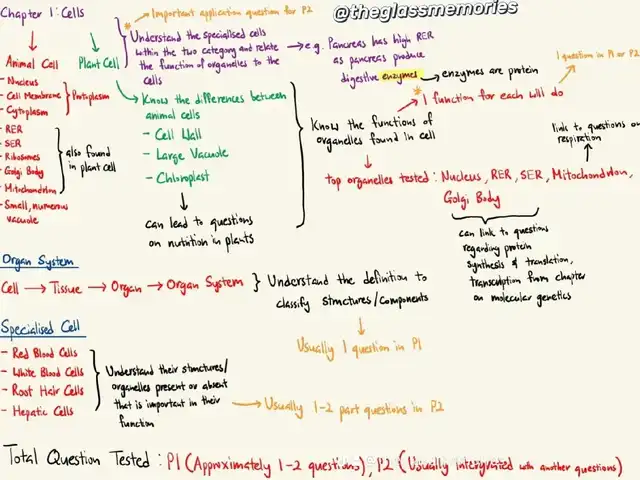 @theglassmemories
Chapter 1: Cells
* Important application question for P2
Animal Cell
Plant Cell
Understand the specialised cells
within the two category and relate
the function of organelles to the
cells
e.g. Pancreas has high RER
as pancreas produce
digestive enzymes
enzymes are protein
1 question in P1 or P2
- Nucleus
- Cell Membrane
- Cytoplasm
Protoplasm
- RER
- SER
- Ribosomes
- Golgi Body
- Mitochondrion
also found
in plant cell
- Small, numerous
vacuole
Know the differences between
animal cells
- Cell Wall
- Large Vacuole
- Chloroplast
can lead to questions
on nutrition in plants
Know the functions of
organelles found in cell
* 1 function for each will do
link to questions on
respiration
top organelles tested: Nucleus, RER, SER, Mitochondrion,
Golgi Body
can link to questions
regarding protein
synthesis & translation,
transcription from chapter
on molecular genetics
Organ System
Cell → Tissue → Organ → Organ System
Understand the definition to
classify structures/components
Usually 1 question in P1
Specialised Cell
- Red Blood Cells
- White Blood Cells
- Root Hair Cells
- Hepatic Cells
Understand their structures/
organelles present or absent
that is important in their
function
Usually 1-2 part questions in P2
Total Question Tested: P1 (Approximately 1-2 questions), P2 (Usually intergrated with another questions)